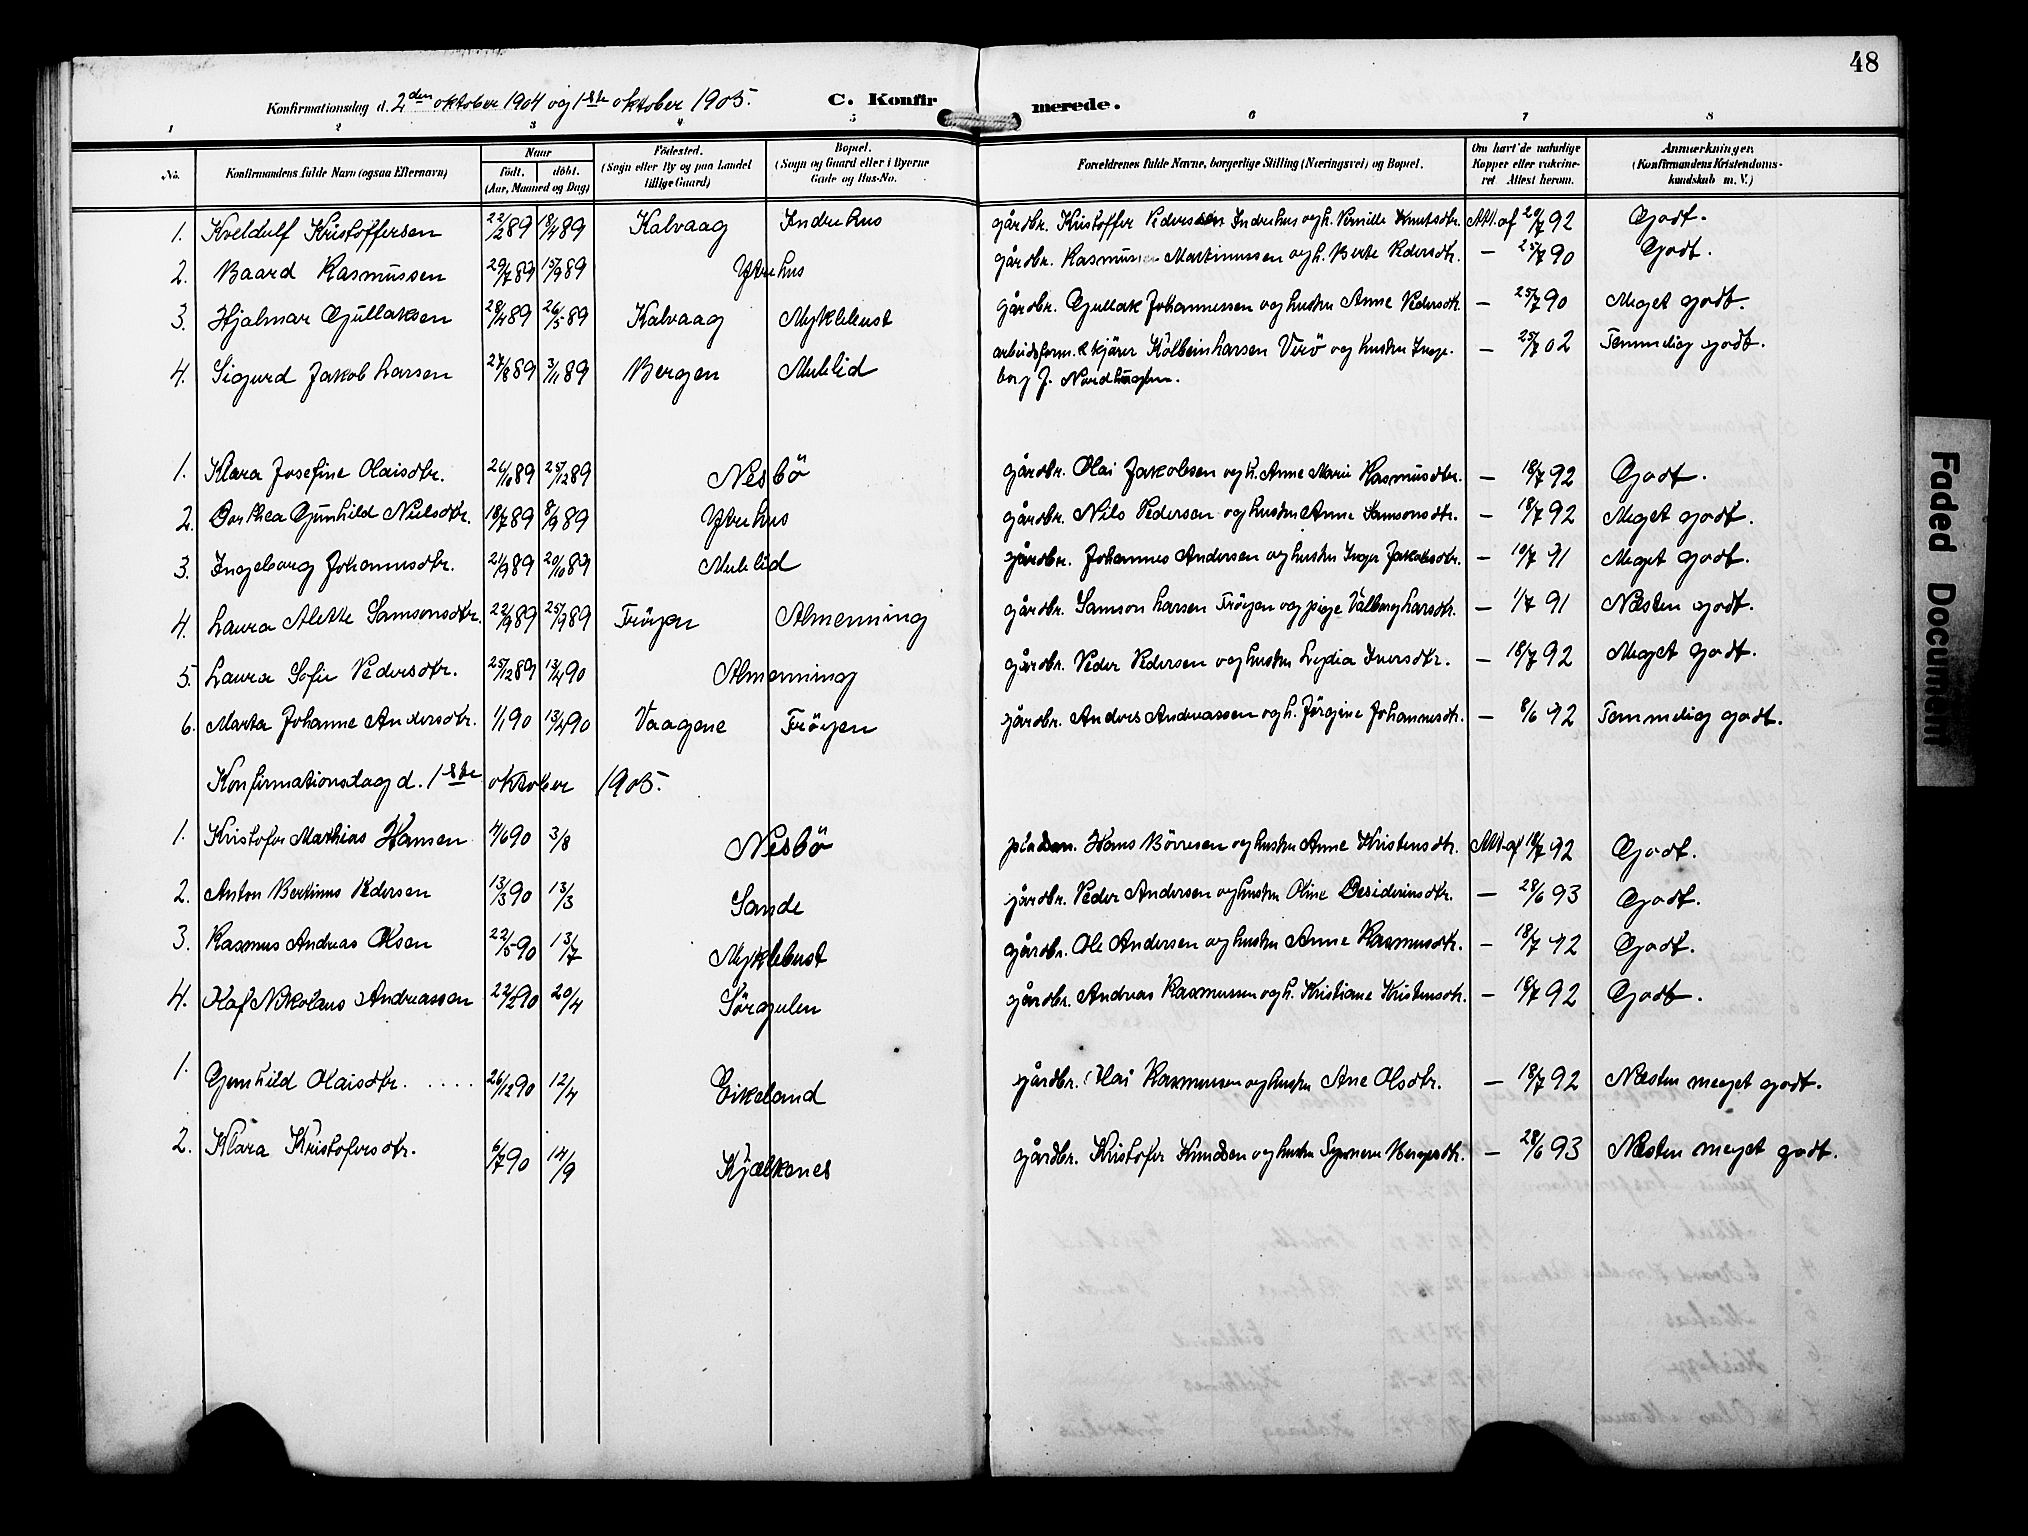 48
Konfirmationsdag d. 2den oktober 1904 og 1ste oktober 1905. C. Konfirmerede.
1 2 3 4 5 6 7 8
No. Konfirmandens fulde Navn (ogsaa Efternavn) Naar født. døbt. (Aar, Maaned og Dag) Födested. (Sogn eller By og paa Landet tillige Gaard) Bopæl. (Sogn og Gaard eller i Byerne Gade og Hus-No. Forældrenes fulde Navne, borgerlige Stilling (Næringsvei) og Bopæl. Om havt de naturlige Kopper eller vaksineret Attest herom. Anmærkninger. (Konfirmandens Kristendomskundskab m. V.)
1. Kveldulf Kristoffersen 22/2 89 18/4 89 Kalvaag Indrehus gårdbr. Kristoffer Pedersen Indrehus og h. Pernille Knutsdtr. Att. af 20/7 92 Godt.
2. Baard Rasmussen 29/7 89 15/9 89 Ytrehus gårdbr. Rasmus Martinussen og h. Berte Pedersdtr. — 25/7 90 Godt.
3. Hjalmar Gullaksen 28/4 89 26/5 89 Kalvaag Myklebust gårdbr. Gullak Johannessen og hustru Anne Pedersdtr. — 25/7 90 Meget godt.
4. Sigurd Jakob Larsen 27/8 89 3/11 89 Bergen Mulelid arbeidsform. Kolbein Larsen Verö og hustru Inge- — 25/7 02 Temmelig godt.
borg J.
1. Klara Josefine Olaisdtr. 26/10 89 25/12 89 Nesbö gårdbr. Olai Jakobsen og h. Anne Marie Rasmusdtr. — 18/7 92 Godt.
2. Dorthea Gunhild Nielsdtr. 18/7 89 8/9 89 Ytrehus gårdbr. Nils Pedersen og hustru Anne Samsonsdtr. — 18/7 92 Meget godt.
3. Ingeborg Johannesdtr. 21/9 89 20/10 89 Mulelid gårdbr. Johannes Andersen og hustru Inger Jakobsdtr. — 10/7 91 Meget godt.
4. Laura Alette Samsonsdtr. 22/9 89 25/9 89 Fröyen Almenning gårdbr. Samson Larsen Fröyen og pige Valborg Larsdtr. — 1/7 91 Næsten godt.
5. Laura Sofie Pedersdtr. 25/12 89 13/4 90 Almenning gårdbr. Peder Pedersen og hustru Lydia Iversdtr. — 18/7 92 Meget godt.
6. Marta Johanne Andersdtr. 1/1 90 13/4 90 Vaagene Fröyen gårdbr. Anders Andreassen og h. Jörgine Johannesdtr. — 8/6 92 Temmelig godt.
Konfirmationsdag d. 1ste oktober 1905.
1. Kristofer Mathias Hansen 4/6 90 3/8 Nesbö pladsm. Hans Börresen og hustru Anne Kristensdtr. Att. af 18/7 92 Godt.
2. Anton Bertinus Pedersen 13/3 90 13/3 Sande gårdbr. Peder Andersen og hustru Oline Desideriusdtr. — 28/6 93 Godt.
3. Rasmus Andreas Olsen 22/5 90 13/7 Myklebust gårdbr. Ole Andersen og hustru Anne Rasmusdtr. — 18/7 92 Godt.
4. Olaf Nikolaus Andreassen 22/2 90 20/4 Sörgulen gårdbr. Andreas Rasmussen og h. Kristiane Kristensdtr. — 18/7 92 Godt.
1. Gunhild Olaisdtr. . . . . 26/12 90 12/4 Eikeland gårdbr. Olai Rasmussen og hustru Ane Olsdtr. — 18/7 92 Næsten meget godt.
2. Klara Kristofersdtr. 6/7 90 14/9 Kjælkenes gårdbr. Kristofer Knudsen og hustru Bergersdtr. — 28/6 93 Næsten meget godt.
Faded Document